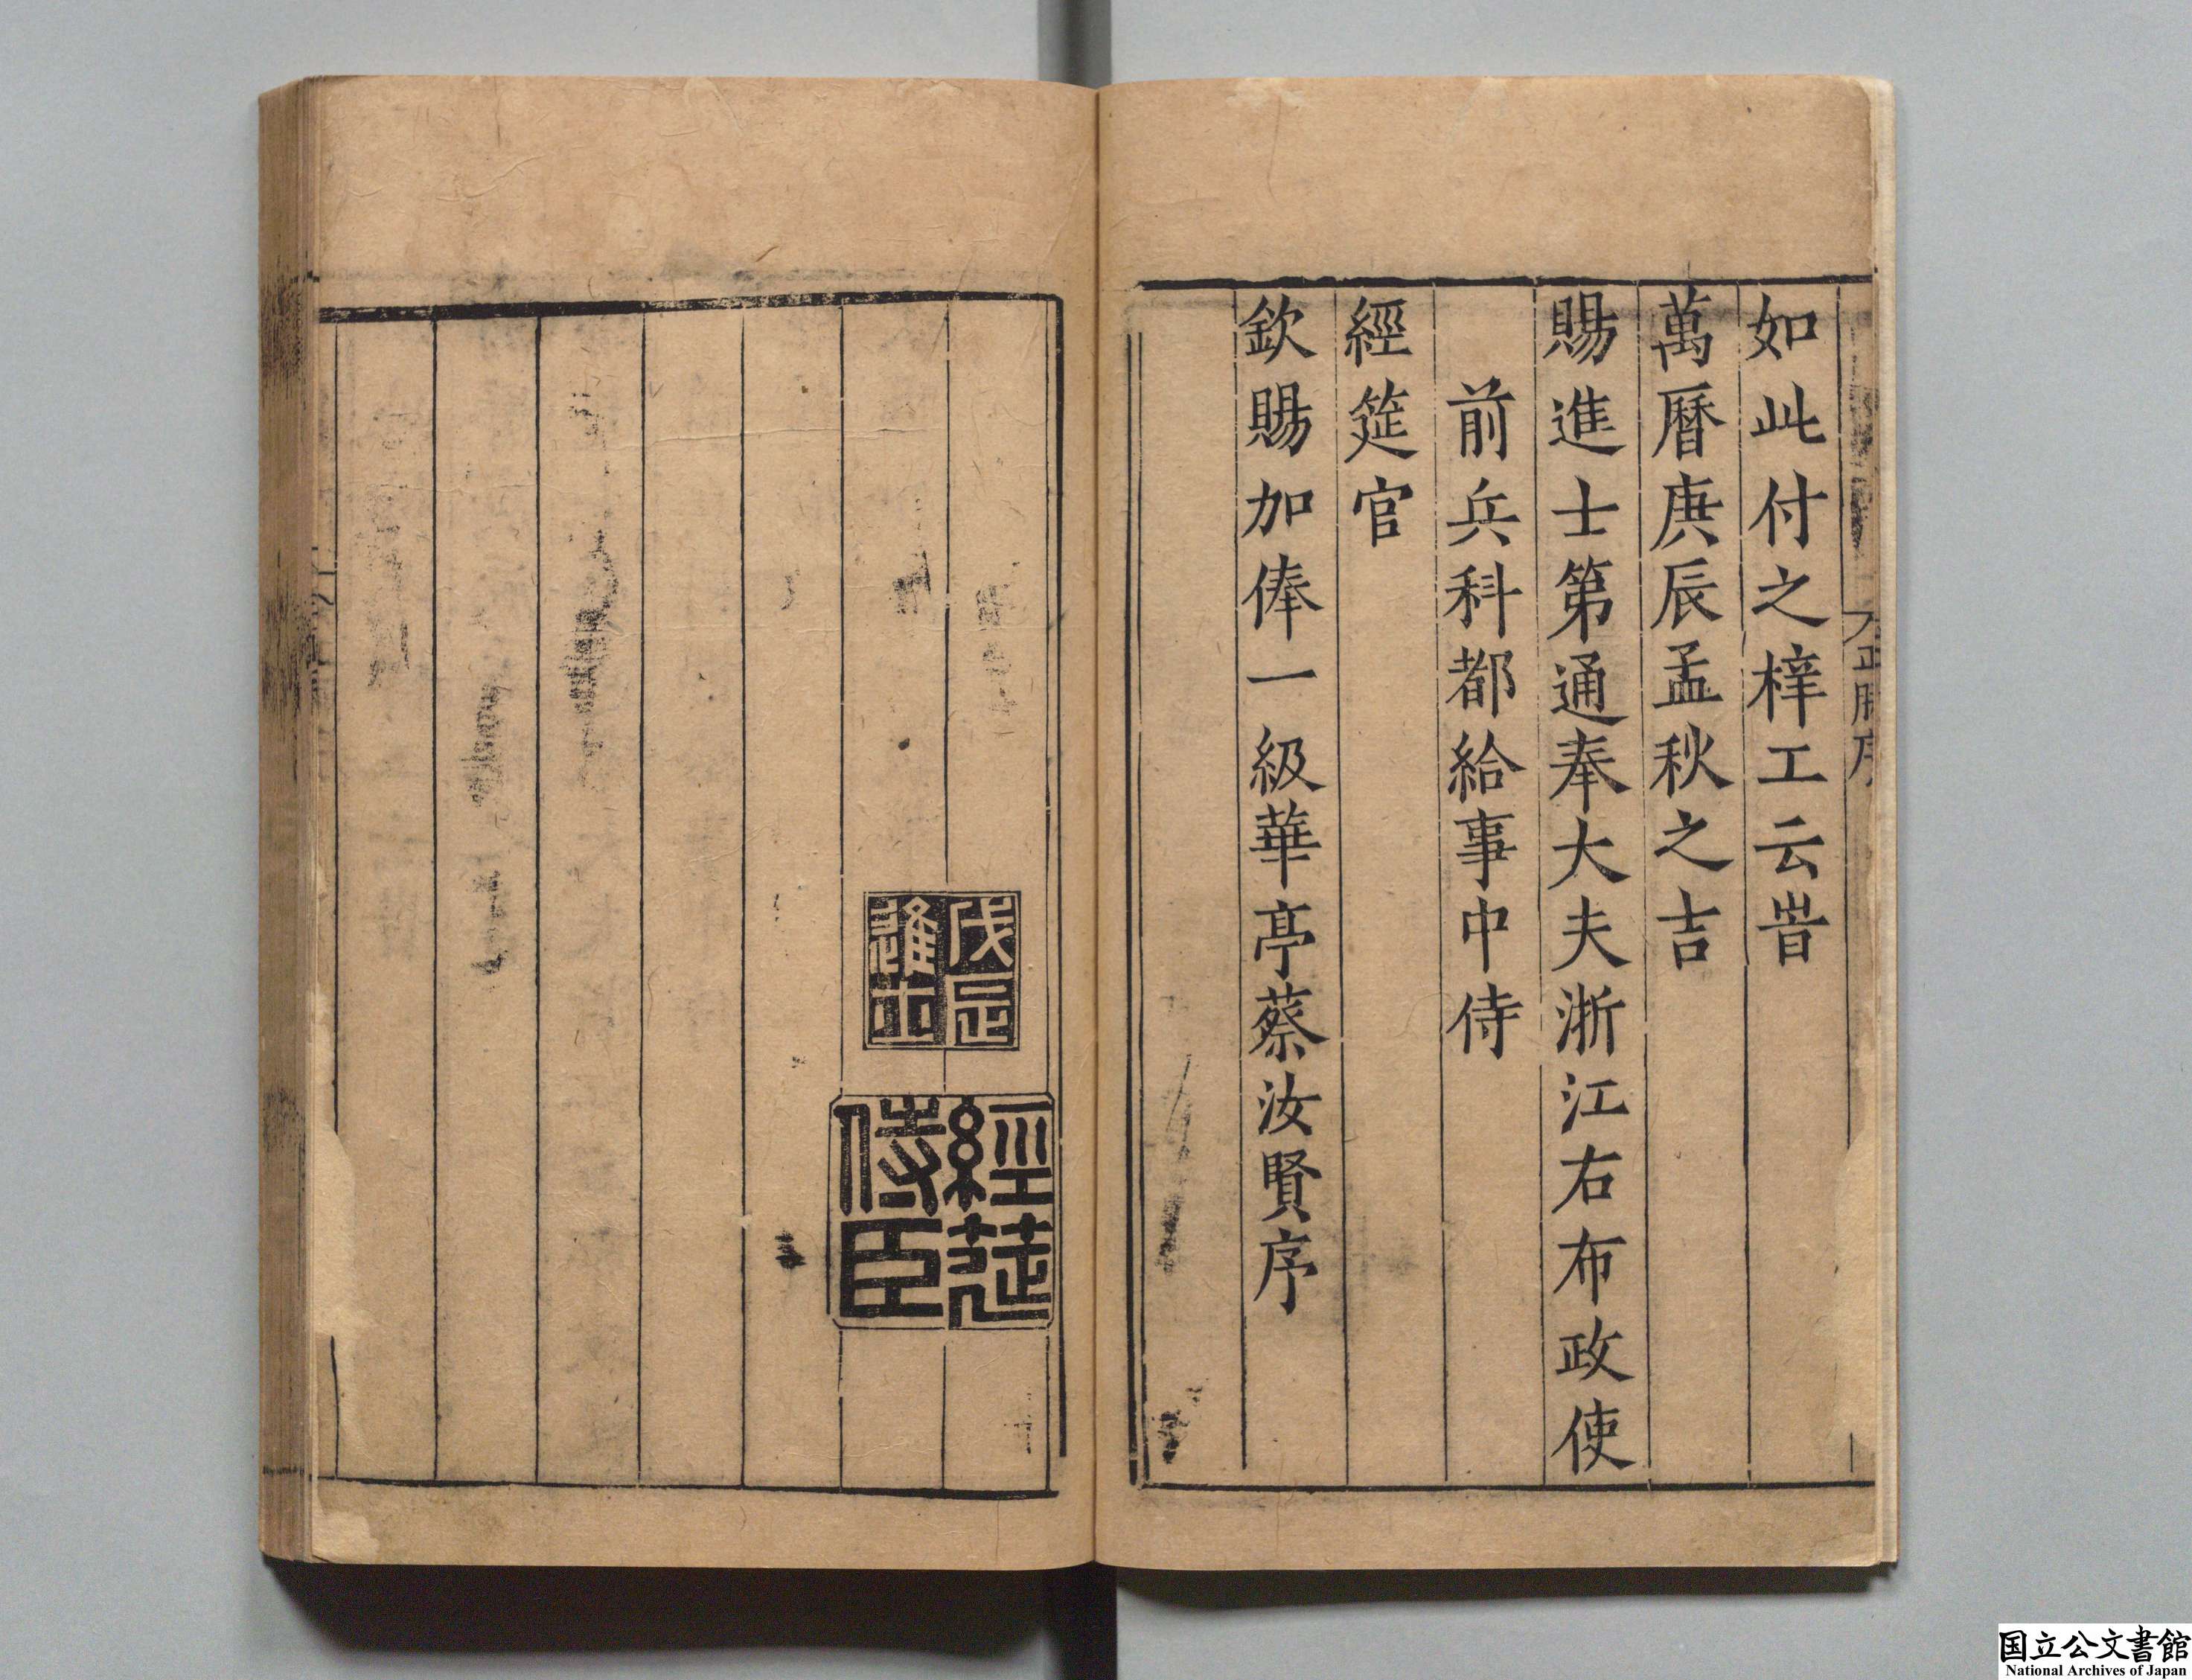 如此付之梓工云旹
萬曆庚辰孟秋之吉
賜進士第通奉大夫浙江右布政使
前兵科都給事中侍
經筵官
欽賜加俸一級華亭蔡汝賢序
戊辰進士
經筵侍臣
国立公文書館
National Archives of Japan